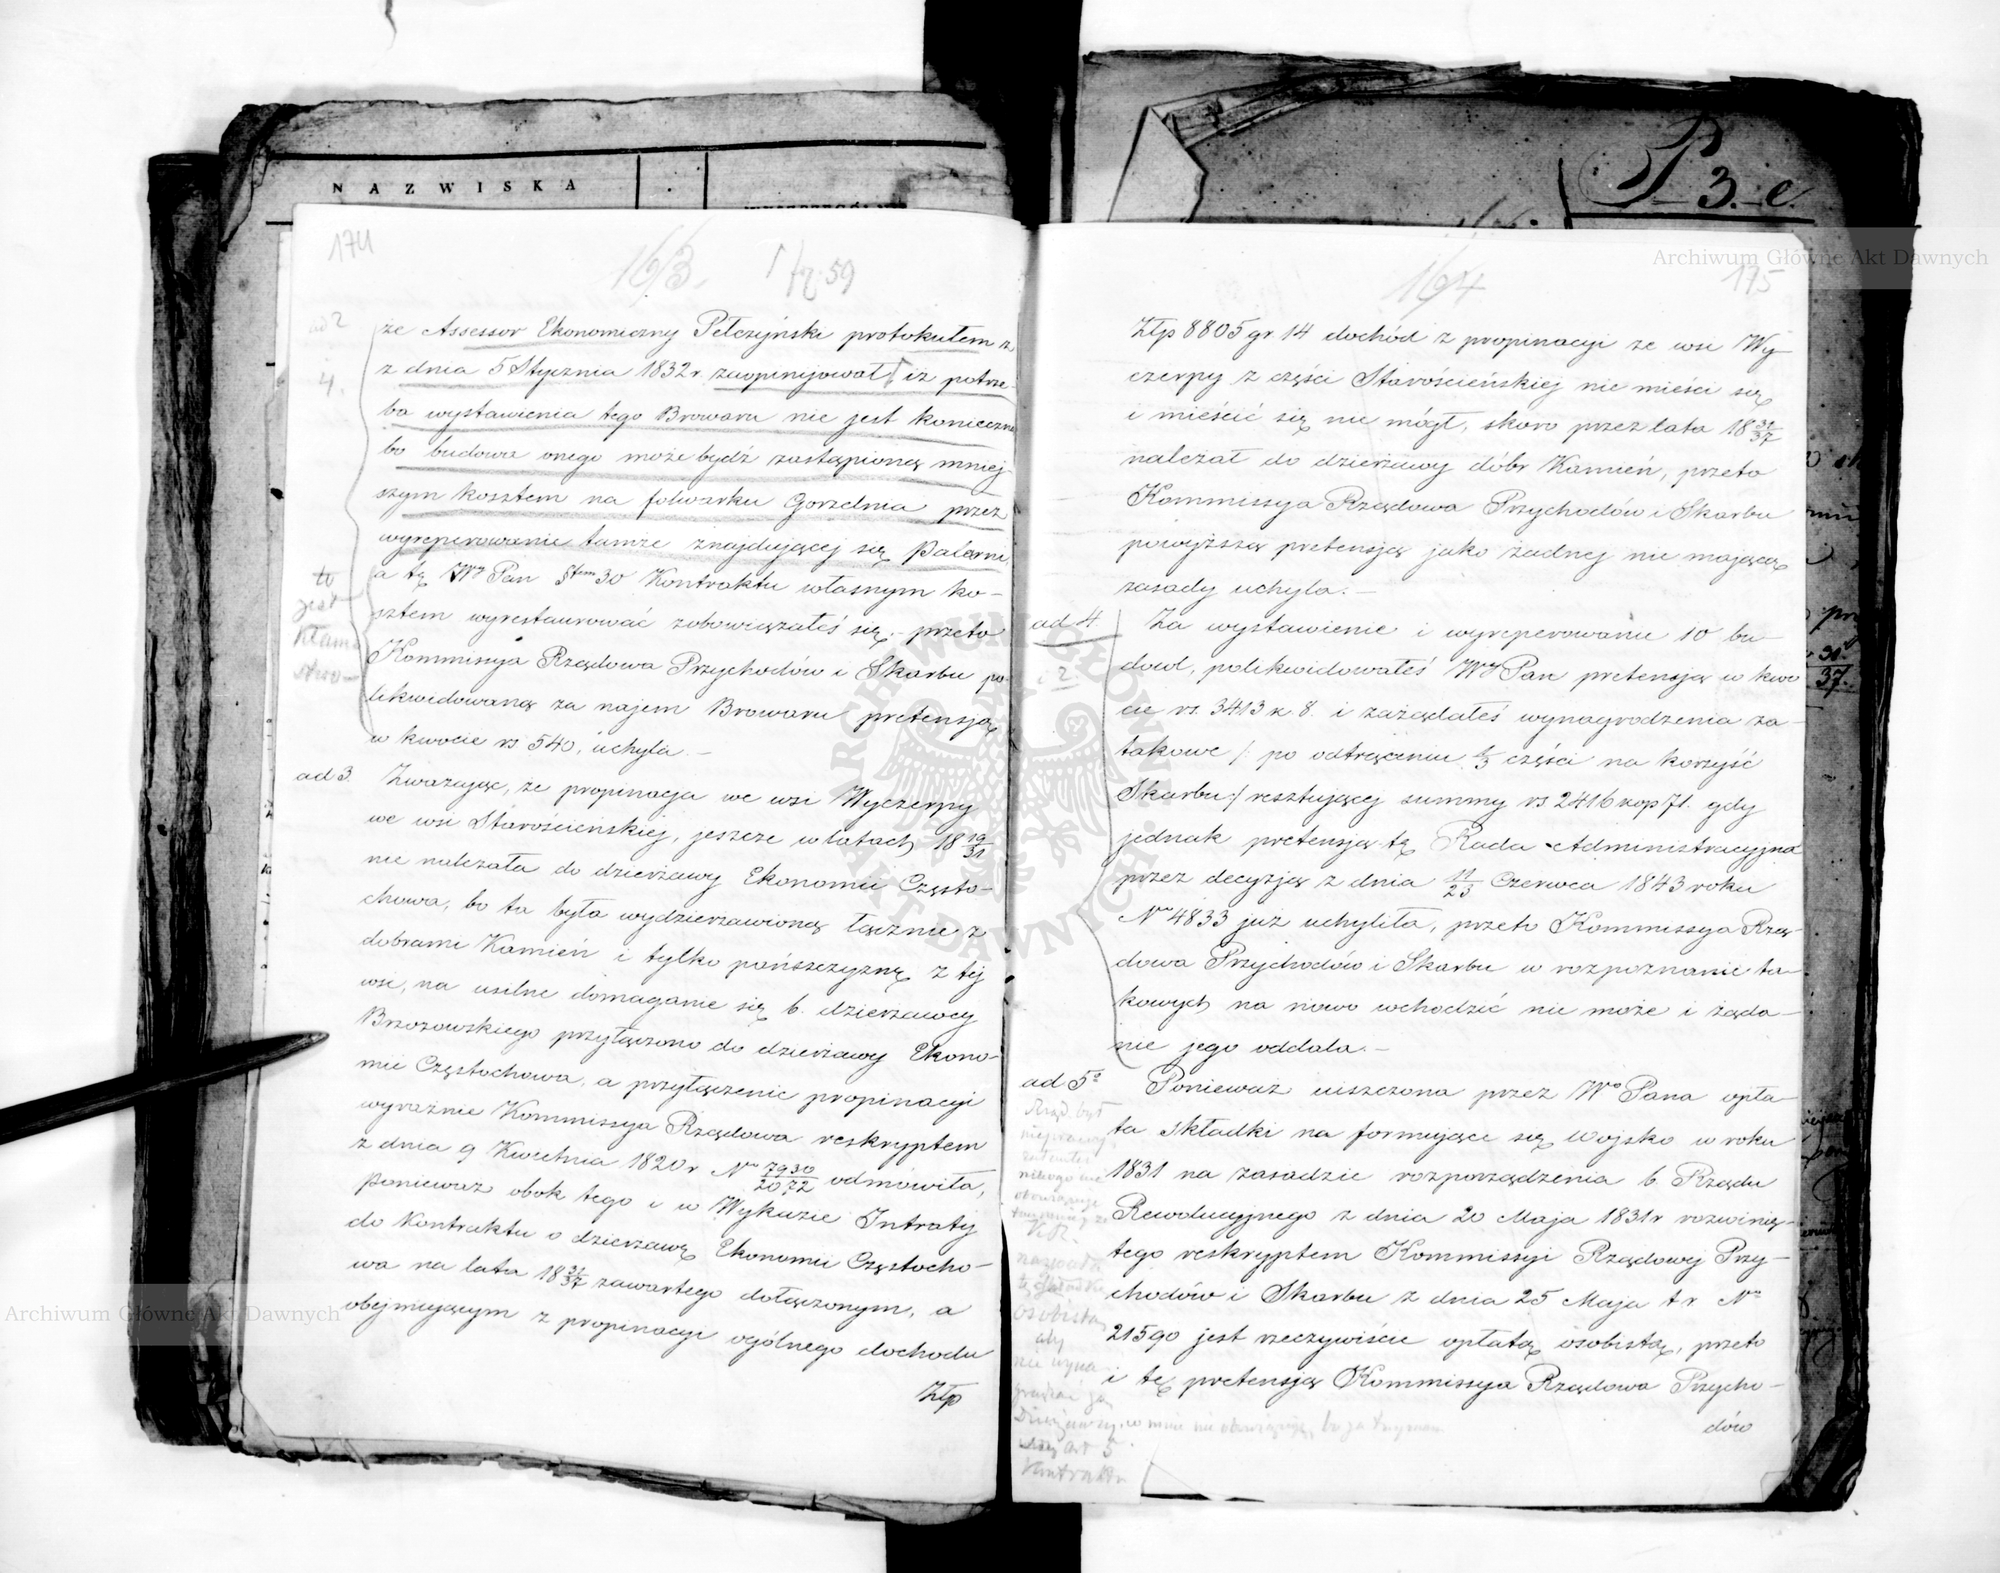 NAZWISKA
P 3. c.
174
163.
59
ad 2
4.
że Assessor Ekonomiczny Pełczyński protokułem z
z dnia 5 Stycznia 1832 r. zaopiniował iż potrze-
ba wystawienia tego Browaru nie jest konieczną
bo budowa onego może bydź zastąpioną mniej-
szym kosztem na folwarku Gorzelnia przez
wyreperowanie tamże znajdującej się palarni,
a tę Wy Pan §tem 30 Kontraktu własnym ko-
sztem wyrestaurować zobowiązałeś się. – przeto
Kommissya Rządowa Przychodów i Skarbu po-
likwidowaną za najem Browaru pretensyą
w kwocie rs 540, uchyla. –
to
jest
Kłam-
stwo
ad 3
Zważając, że propinacja we wsi Wyczerpy
we wsi Starościeńskiej, jeszcze w latach 18 19/31
nie należała do dzierżawy Ekonomii Często-
chowa, bo ta była wydzierżawioną łącznie z
dobrami Kamień i tylko pańszczyznę z tej
wsi, na usilne domaganie się b. dzierżawcy
Brzozowskiego przyłączono do dzierżawy Ekono-
mii Częstochowa, a przyłączenie propinacyi
wyraźnie Kommissya Rządowa reskryptem
z dnia 9 Kwietnia 1820 r No 7930/2072 odmówiła,
ponieważ obok tego i w Wykazie Intraty
do Kontraktu o dzierżawę Ekonomii Częstocho-
wa na lata 18 31/37 zawartego dołączonym, a
obejmującym z propinacyi ogólnego dochodu
Złp
164
175
Złp 8805 gr. 14 dochód z propinacyi ze wsi Wy-
czerpy z części Starościeńskiej nie mieści się
i mieścić się nie mógł, skoro przez lata 18 31/37
należał do dzierżawy dóbr Kamień, przeto
Kommissya Rządowa Przychodów i Skarbu
powyższą pretensyą jako żadnej nie mającą
zasady uchyla. –
ad 4
i 2
Za wystawienie i wyreperowanie 10 bu-
dowl, polikwidowałeś Wy Pan pretensyą w kwo
cie rs. 3413 k. 8. i zażądałeś wynagrodzenia za-
takowe /: po odtrąceniu 1/3 części na korzyść
Skarbu :/ resztującej summy rs 2416 kop 71. gdy
jednak pretensyą tę Rada Administracyjna
przez decyzją z dnia 11/23 Czerwca 1843 roku
No 4833 już uchyliła, przeto Kommissya Rzą-
dowa Przychodów i Skarbu w rozpoznanie ta-
kowych na nowo wchodzić nie może i żąda-
nie jego oddala. –
ad 5o
Ponieważ uiszczona przez Wo Pana opła-
ta składki na formujące się wojsko w roku
1831 na zasadzie rozporządzenia b. Rządu
Rewolucyjnego z dnia 20 Maja 1831 r rozwinię-
tego reskryptem Kommissyi Rządowej Przy-
chodów i Skarbu z dnia 25 Maja t. r. No
21590 jest rzeczywiście opłatą osobistą, przeto
i tę pretensyą Kommissya Rządowa Przycho-
dów
Rząd był
nikogo nie
K.R.
nazwała
osobistą
aby
nie wyna
art 5
Kontraktu
Archiwum Główne Akt Dawnych
Archiwum Główne Akt Dawnych
ARCHIWUM GŁÓWNE AKT DAWNYCH